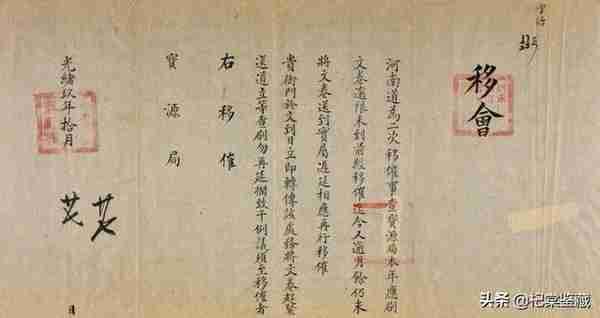 移會
河南道為二次移催事查寶源局本年應刷
文卷逾限未到前經移催迄今又逾月餘仍未
將文卷送到實屬遲延相應再行移催
貴衙門於文到日立即轉傳該處務將文卷趕緊
送道立等查刷勿再延擱致干例議須至移催者
右移催
寶源局
光緒玖年拾月
日
头条 @杞棠鉴藏